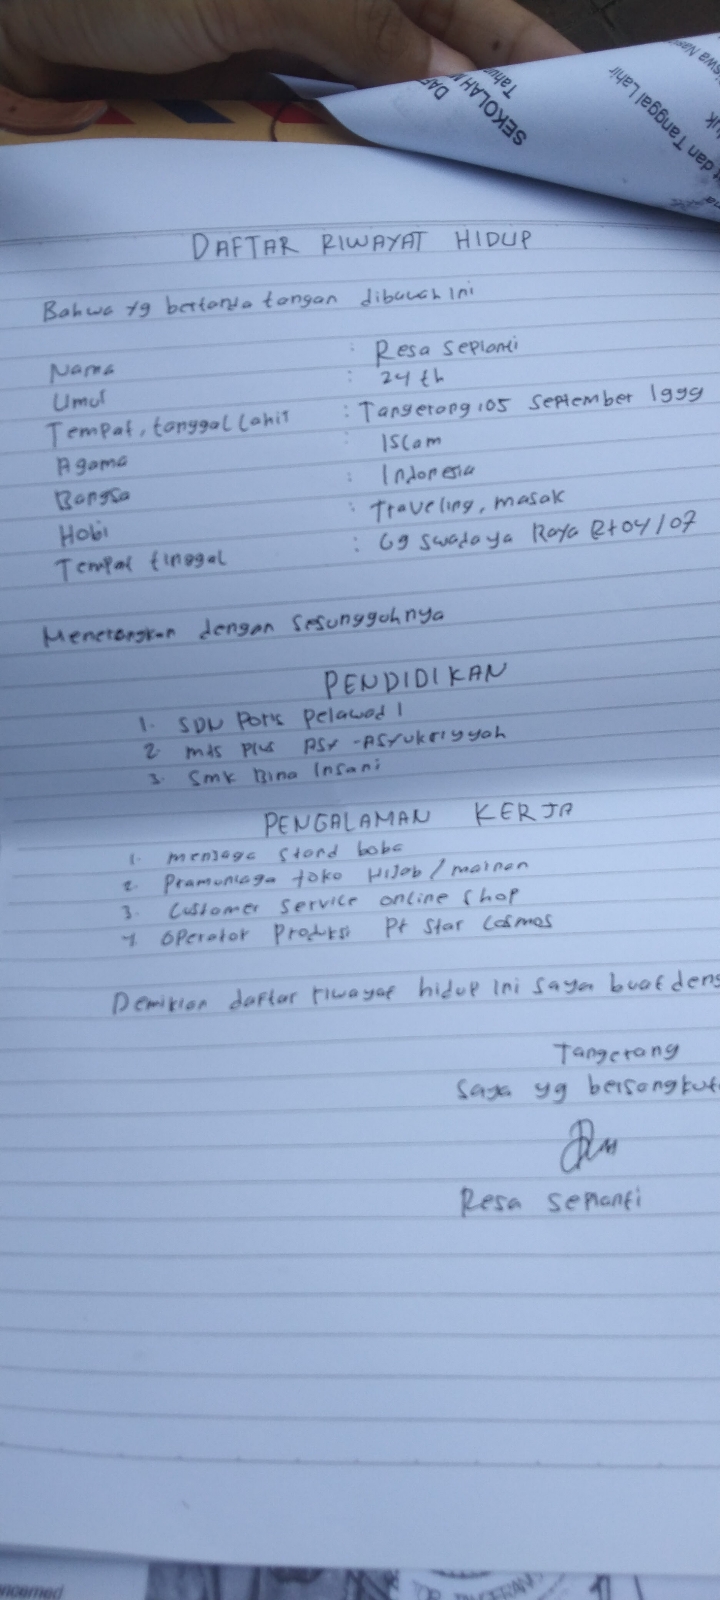 DAF
SEKOLAH M
Tahun
swa Nas
t dan Tanggal Lahir
uk
DAFTAR RIWAYAT HIDUP
Bahwa yg bertanda tangan dibawah ini
Nama : Resa Sepianti
Umur : 24 th
Tempat, tanggal Lahir : Tangerang, 05 September 1999
Agama : Islam
Bangsa : Indonesia
Hobi : Traveling, masak
Tempat tinggal : Gg swadaya Raya Rt04/07
Menerangkan dengan Sesungguhnya
PENDIDIKAN
1. SDN Poris Pelawad 1
2. mts Plus Asy-Asyukriyyah
3. Smk Bina Insani
PENGALAMAN KERJA
1. menjaga stand boba
2. Pramuniaga toko Hijab / mainan
3. Customer service online shop
4. Operator Produksi Pt Star Cosmos
Demikian daftar riwayat hidup ini saya buat deng
Tangerang
Saya yg bersangkut
Resa Sepianti
ncerned
TOR TANGERANG